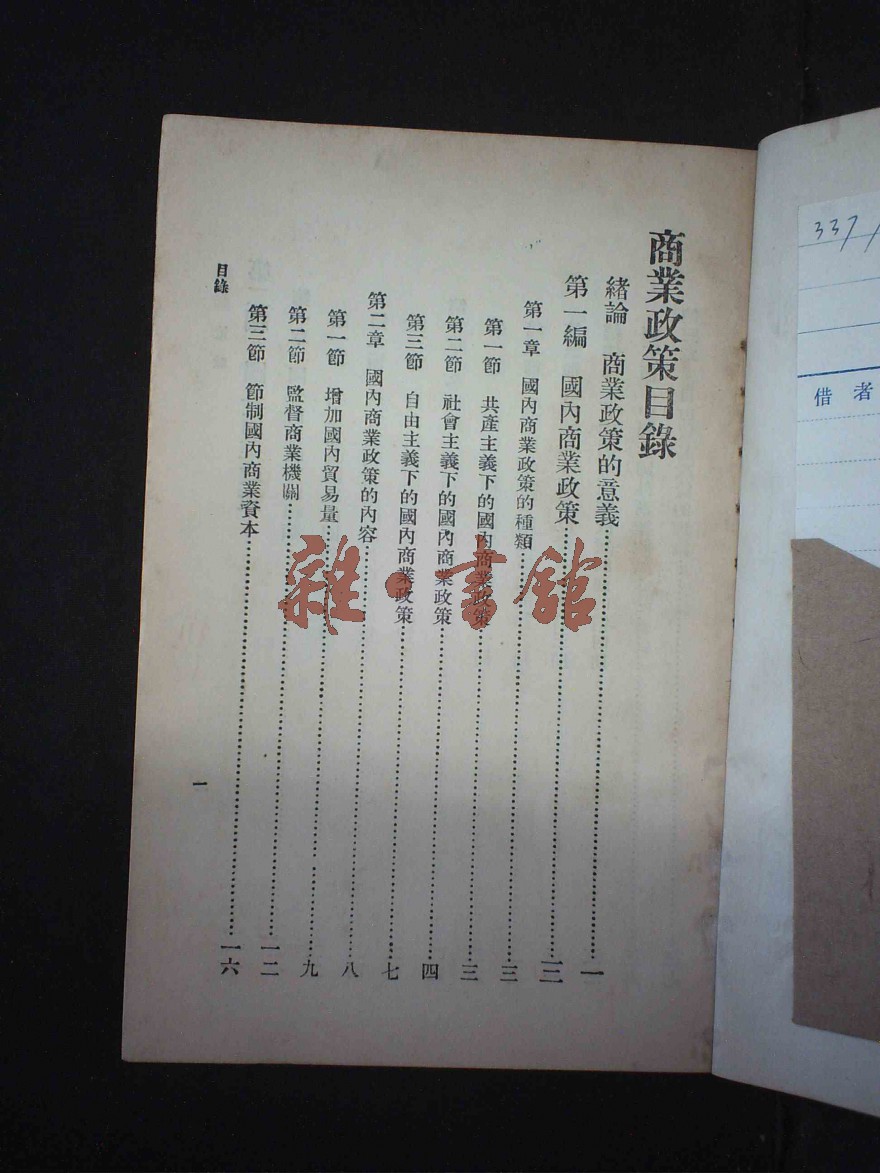 337/
借者
商業政策目錄
緒論 商業政策的意義……一
第一編 國內商業政策……三
第一章 國內商業政策的種類……三
第一節 共產主義下的國內商業政策……三
第二節 社會主義下的國內商業政策……四
第三節 自由主義下的國內商業政策……七
第二章 國內商業政策的內容……八
第一節 增加國內貿易量……九
第二節 監督商業機關……一二
第三節 節制國內商業資本……一六
目錄
一
雜·書館